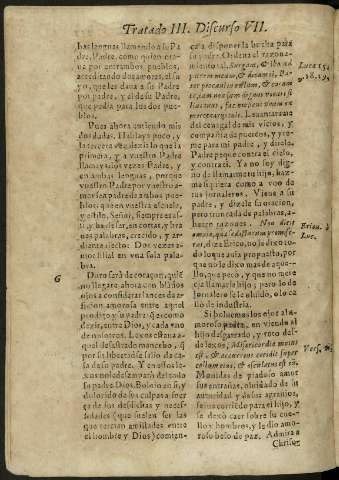 Tratado III. Discurso VII.
bas lenguas llamando à su Pa
dre, Padre, como quien ora-
ua por entrambos pueblos,
acreditando dos amores, el su
yo, que les daua à su Padre
por padre, y el de su Padre,
que pedia para los dos pue-
blos.
Pues ahora entiendo mis
dos dudas. Hablaua poco,
la tercera vez dezia lo que la
primera, y à vuestro Padre
llamays vos dos vezes Padre,
y en ambas lenguas, porque
vuestro Padre por vuestro a-
mor sea padre de ambos pue-
blos; que es en vuestra escuela,
y estilo, Señor, siempre assi-
y barbasar, en cortas, y tier
nas palabras, crecido, y ar-
diente afecto: Dos vezes a-
mor filial en vna sola pala
bra.
G
Duro será de coraçon, quié
no llegare ahora con blādos
ojos à considerar lances de a-
ficion amorosa entre aquel
prodigo y su padre, que como
dezis, entre Dios, y cada vno
de nosotros. Lexos estaua a-
quel desastrado mancebo, q̃
por su libertad se salio de ca
sa de su Padre. Y en estas le-
xos no se auia alexado del todo
su padre Dios. Boluio en si, y
dolorido de sus culpas, a fuer
ça de sus desdichas y neces-
sidades (que suelen ser las que
tercian amistades entre
el hombre y Dios) comien-
ça à disponer la buelta para
su padre. Ordena el razona-
miento tal, Surgam, & ibo ad
patrem meum, & dicam ei, Pa-
ter peccaui in cœlum, & coram
te, iam non sum dignus vocari fi
lius tuus, fac me sicut vnum ex
mercenarijs. Leuantaréme
del cenagal de mis vicios, y
compañia de puercos, y yre-
me para mi padre, y diréle,
Padre peque contra el cielo,
y contra ti. Ya no soy dig-
no de llamarme tu hijo, haz-
me siquiera como a vno de
tus jornaleros. Viene a su
padre, y dizele su oracion,
pero truncada de palabras, a
hazer razones. Non dixit
omnia, quæ se dicturum promise-
rat, dize Brico, no le dixo to-
do lo que auia propuesto, por
que no le dixo mas de aque-
llo, que pecó, y que no mere
cia llamarle hijo; pero lo de
jornalero se le oluido, o ca
lló de industria.
Si boluemos los ojos al a-
moroso padre, en viendo al
hijo desgarrado, y roto des-
de lexos, Misericordia motus
est, & accurrens cecidit super
collum eius, & osculatus est eū.
Mouido de piadoso amor
sus entrañas, oluidado de su
autoridad y desus agrauios,
se fue corriedo para el hijo, y
se dexó caer sobre su cue-
llo x hombros, y le dio amo-
roso beso de paz. Admira a
Chrisos
Lucæ 15.
v. 18. 19.
Luc.